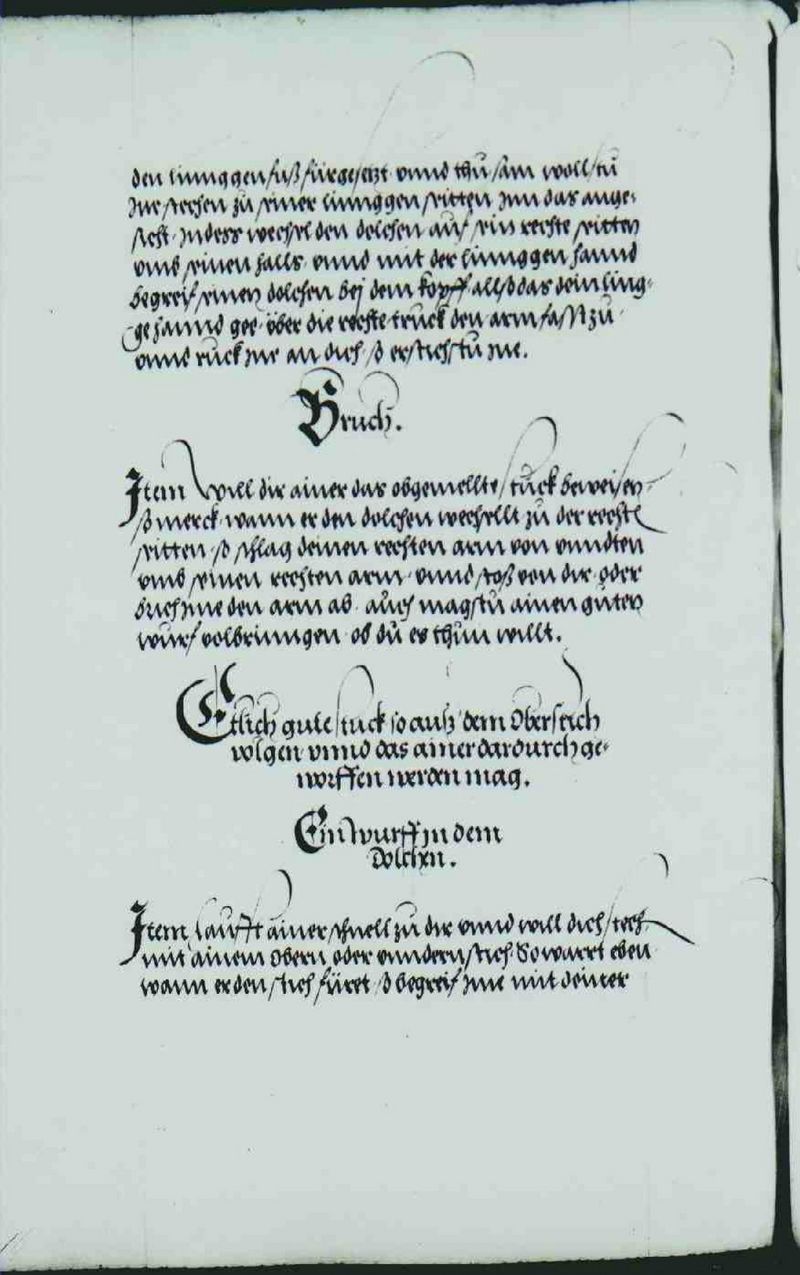 den linnggen fuß fürgesetzt vnnd thu sam wollstu
jne stechen zu seiner linnggen seitten jnn das ange-
sicht. jndess wechsl den dolchen auf sein rechte seitten
vmb seinen halls. vnnd mit der linnggen hannd
begreif seinen dolchen bej dem kopff allso das dein ling-
ge hannd gee. über die rechte. truck den arm fasst zu.
vnnd ruck jne an dich. so erstichstu jne.
Bruch.
Item will dir ainer das obgemellte stuck beweisen
so merck. wann er den dolchen wechsellt zu der recht
seitten. so schlag deinen rechten arm von vnndten
vmb seinen rechten arm. vnnd stoß von dir. oder
brich jme den arm ab. auch magstu ainen guten
wurf volbrinngen. ob du es thun willt.
Etlich gute stuck so auß dem Oberstich
volgen. vnnd das ainer dardurch ge-
worffen werden mag.
Ein wurff jn dem
Dolchen.
Item Laufft ainer schnell zu dir vnnd will dich stech
mit ainem Obern oder vnndern stich. So warrt eben
wann er den stich füret. so begreif jme mit deiner